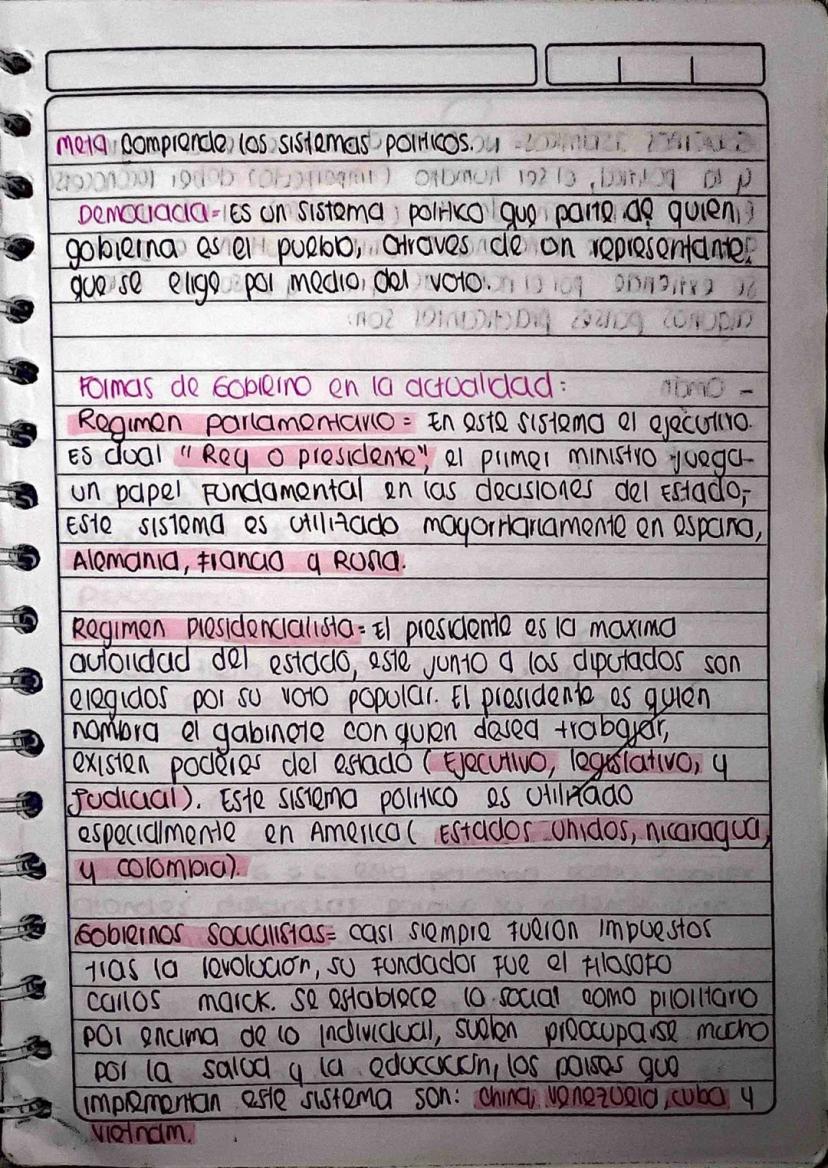 Meta: Comprende los sistemas politicos.
Democracia= Es un sistema politico que parte de quien
gobierna es el pueblo, atraves de un representante
que se elige por medio del voto.
Formas de Gobierno en la actualidad:
Regimen parlamentario= En este sistema el ejecutivo.
Es dual "Rey o presidente", el primer ministro juega
un papel fundamental en las decisiones del Estado,
Este sistema es utilizado mayoritariamente en españa,
Alemania, Francia y Rusia.
Regimen presidencialista= El presidente es la maxima
autoridad del estado, este junto a los diputados son
elegidos por su voto popular. El presidente es quien
nombra el gabinete con quien desea trabajar,
existen poderes del estado (Ejecutivo, legislativo, y
Judicial). Este sistema politico es utilizado
especialmente en America (Estados unidos, nicaragua,
y colombia).
Gobiernos socialistas= casi siempre fueron impuestos
tras la revolución, su fundador fue el filosofo
carlos marck. Se establece lo social como prioritario
por encima de lo individual, suelen preocuparse mucho
por la salud y la educación, los paises que
implementan este sistema son: china, venezuela, cuba y
vietnam.